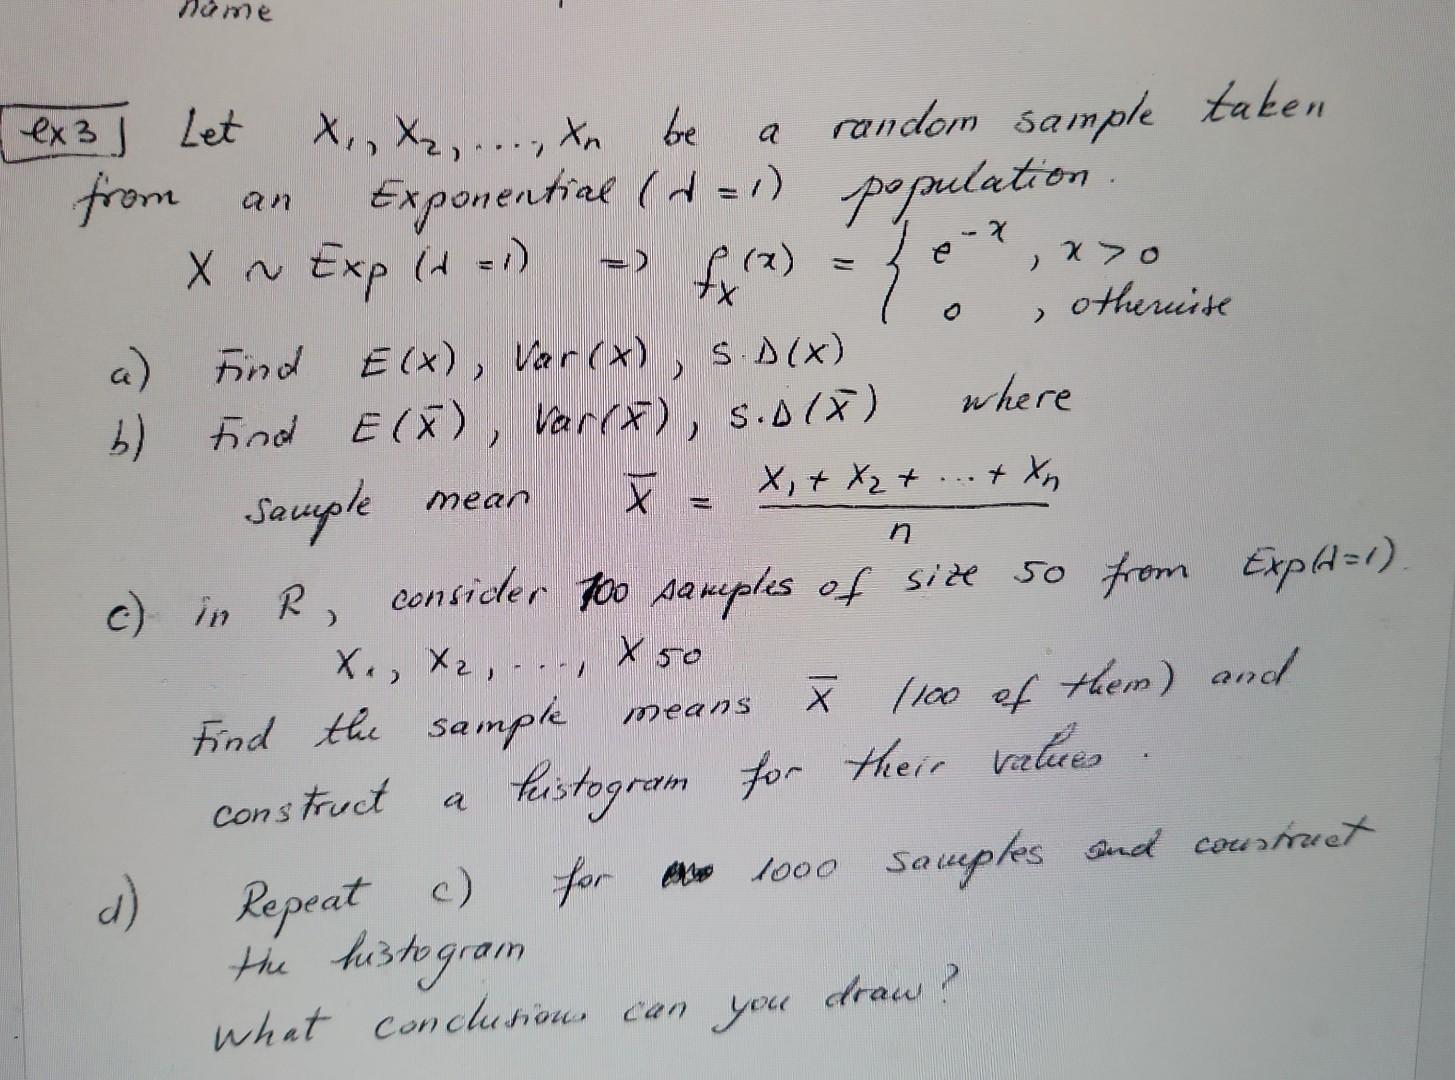 name
ex3 Let X₁, X₂, ..., Xn be a random sample taken
from an Exponential (λ=1) population.
X ~ Exp (λ=1) => fX(x) = { e^-x, x>0
0, otherwise
a) Find E(X), Var(X), S.D(X)
b) Find E(X̄), Var(X̄), S.D(X̄) where
sample mean X̄ = (X₁ + X₂ + ... + Xn) / n
c) in R, consider 100 samples of size 50 from Exp(λ=1).
X₁, X₂, ..., X50
Find the sample means X̄ (100 of them) and
construct a histogram for their values.
d) Repeat c) for 1000 samples and construct
the histogram
What conclusions can you draw?